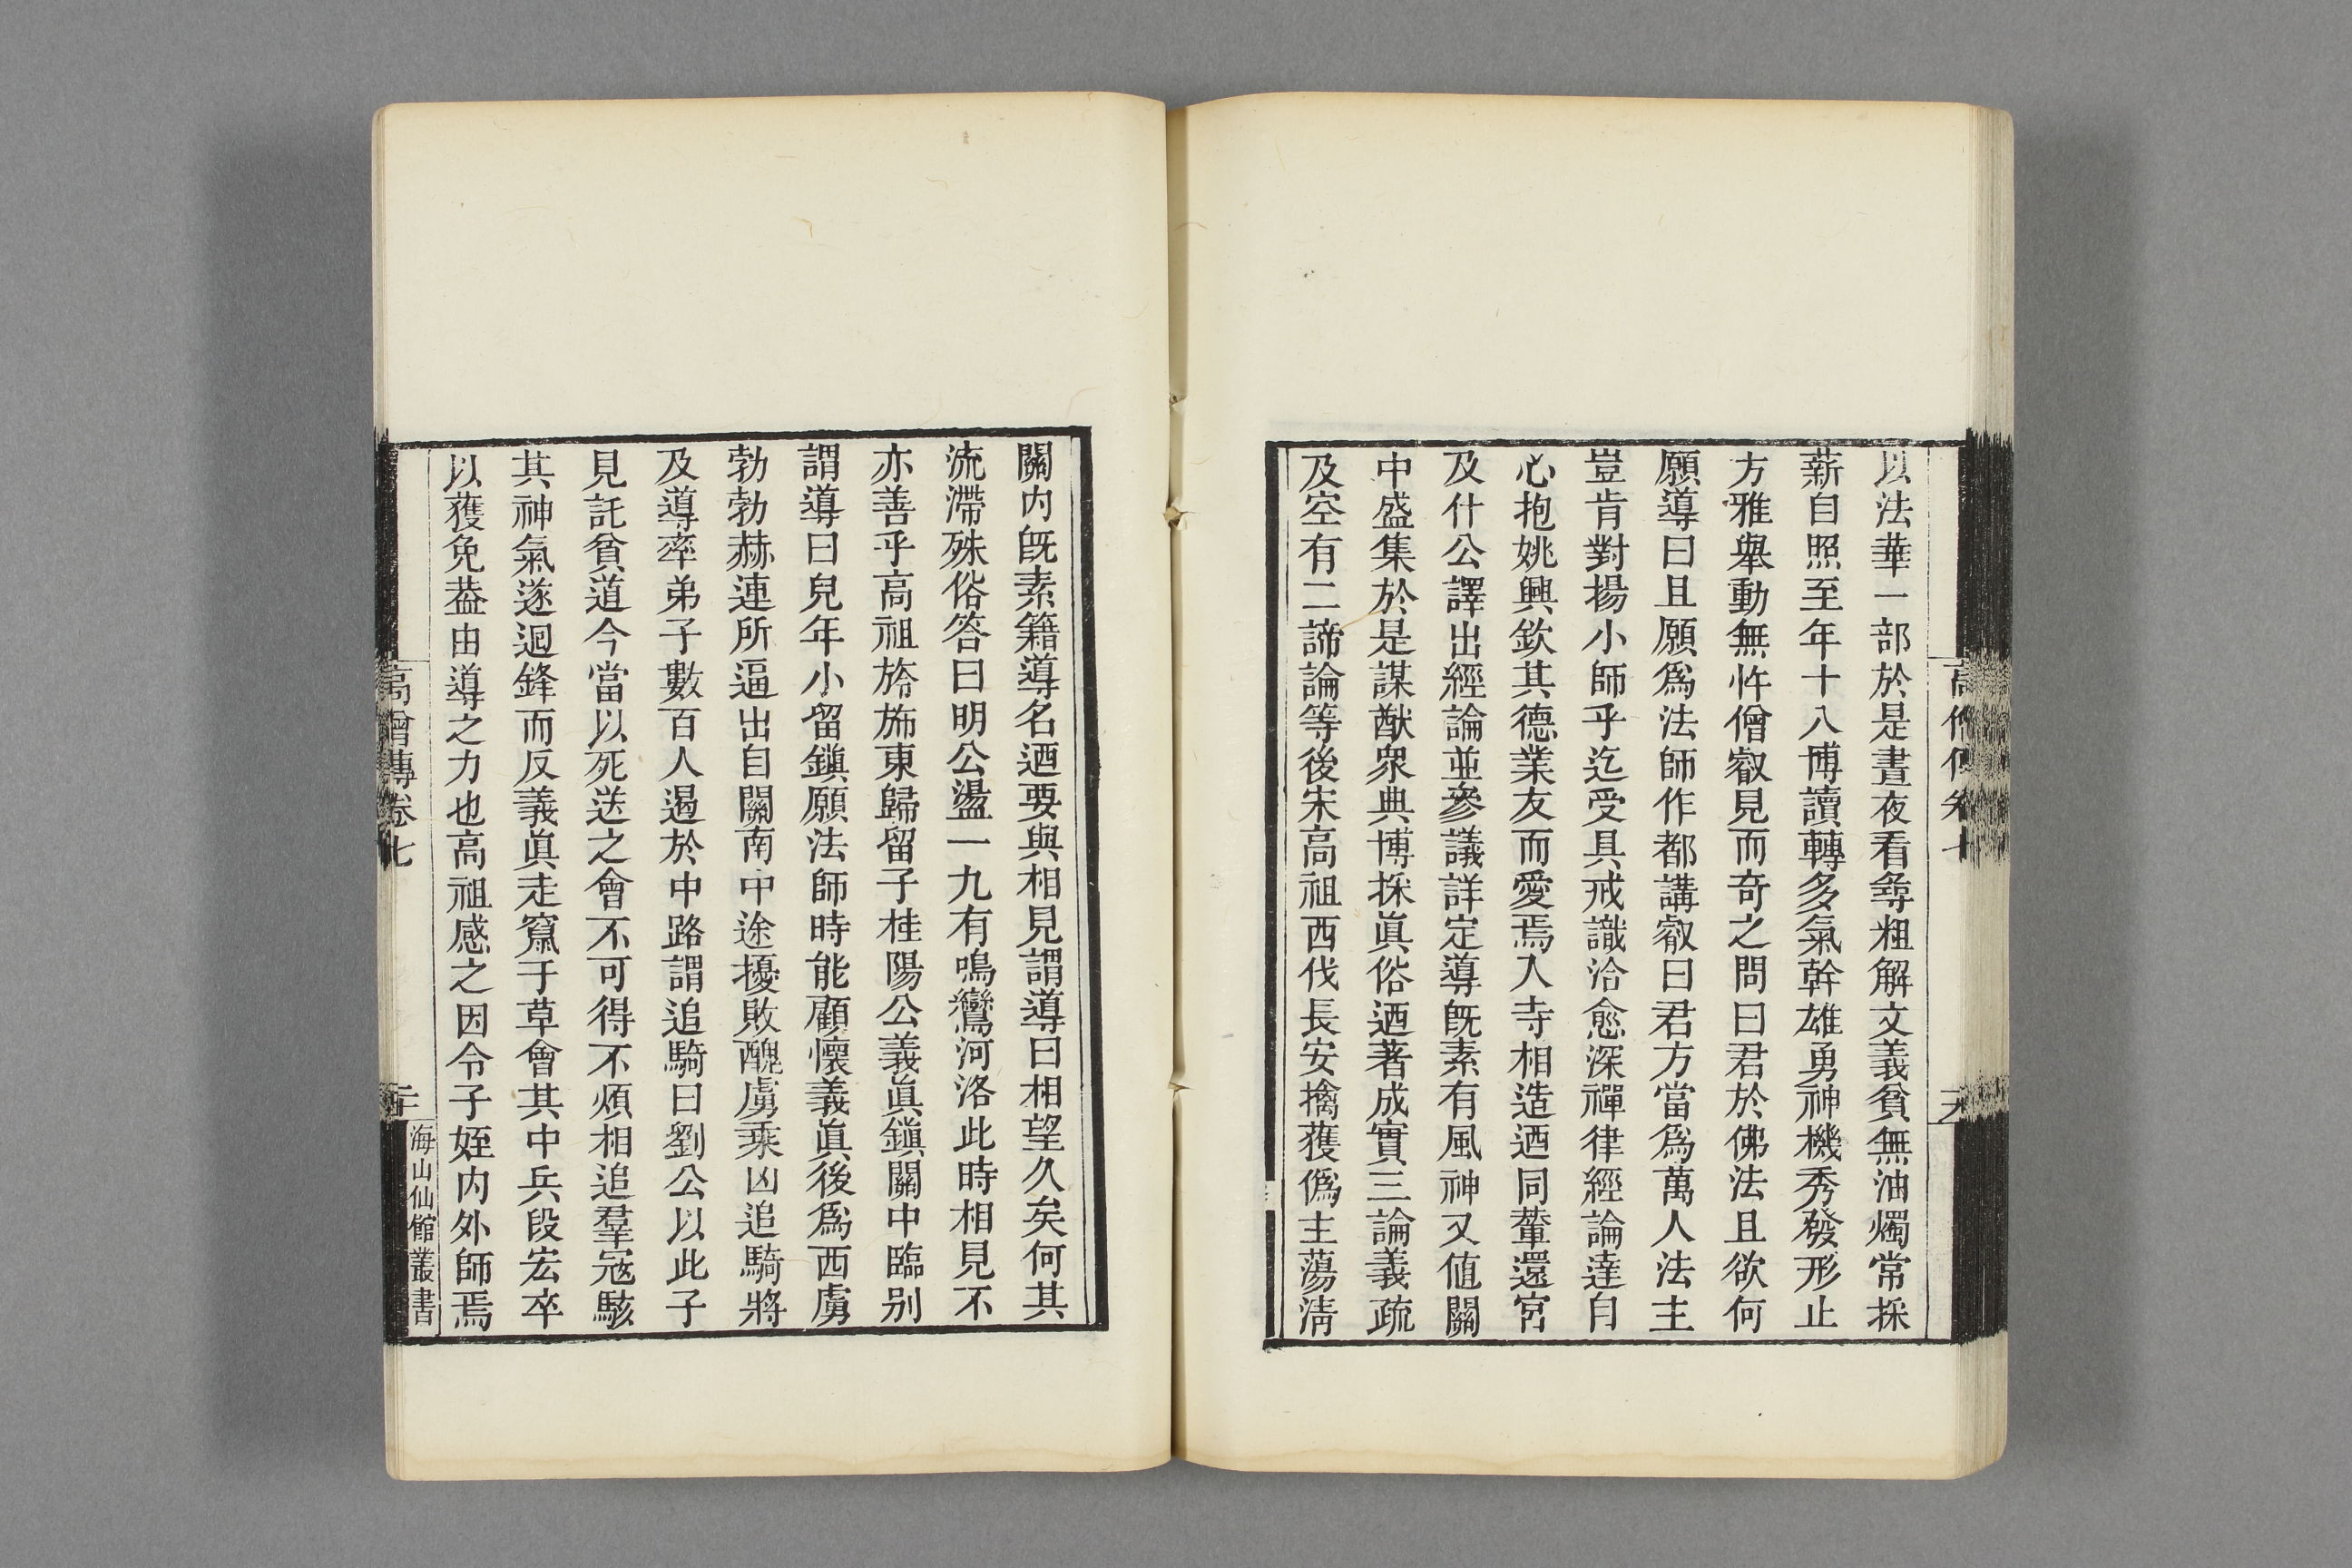 以法華一部於是晝夜看尋粗解文義貧無油燭常採
薪自照至年十八博讀轉多氣幹雄勇神機秀發形止
方雅舉動無忤僧叡見而奇之問曰君於佛法且欲何
願導曰且願爲法師作都講叡曰君方當爲萬人法主
豈肯對揚小師乎迄受具戒識洽愈深禪律經論達自
心抱姚興欽其德業友而愛焉入寺相造迺同輦還宮
及什公譯出經論並參議詳定導旣素有風神又値關
中盛集於是謀猷衆典博採眞俗迺著成實三論義疏
及空有二諦論等後宋高祖西伐長安擒獲僞主蕩淸
關内旣素籍導名迺要與相見謂導曰相望久矣何其
流滯殊俗答曰明公盪一九有鳴鸞河洛此時相見不
亦善乎高祖旍斾東歸留子桂陽公義眞鎭關中臨别
謂導曰兒年小留鎭願法師時能顧懷義眞後爲西虜
勃勃赫連所逼出自關南中途擾敗醜虜乘凶追騎將
及導率弟子數百人遏於中路謂追騎曰劉公以此子
見託貧道今當以死送之會不可得不煩相追羣寇駭
其神氣遂迴鋒而反義眞走竄于草會其中兵段宏卒
以獲免葢由導之力也高祖感之因令子姪内外師焉
高僧傳卷七
海山仙館叢書